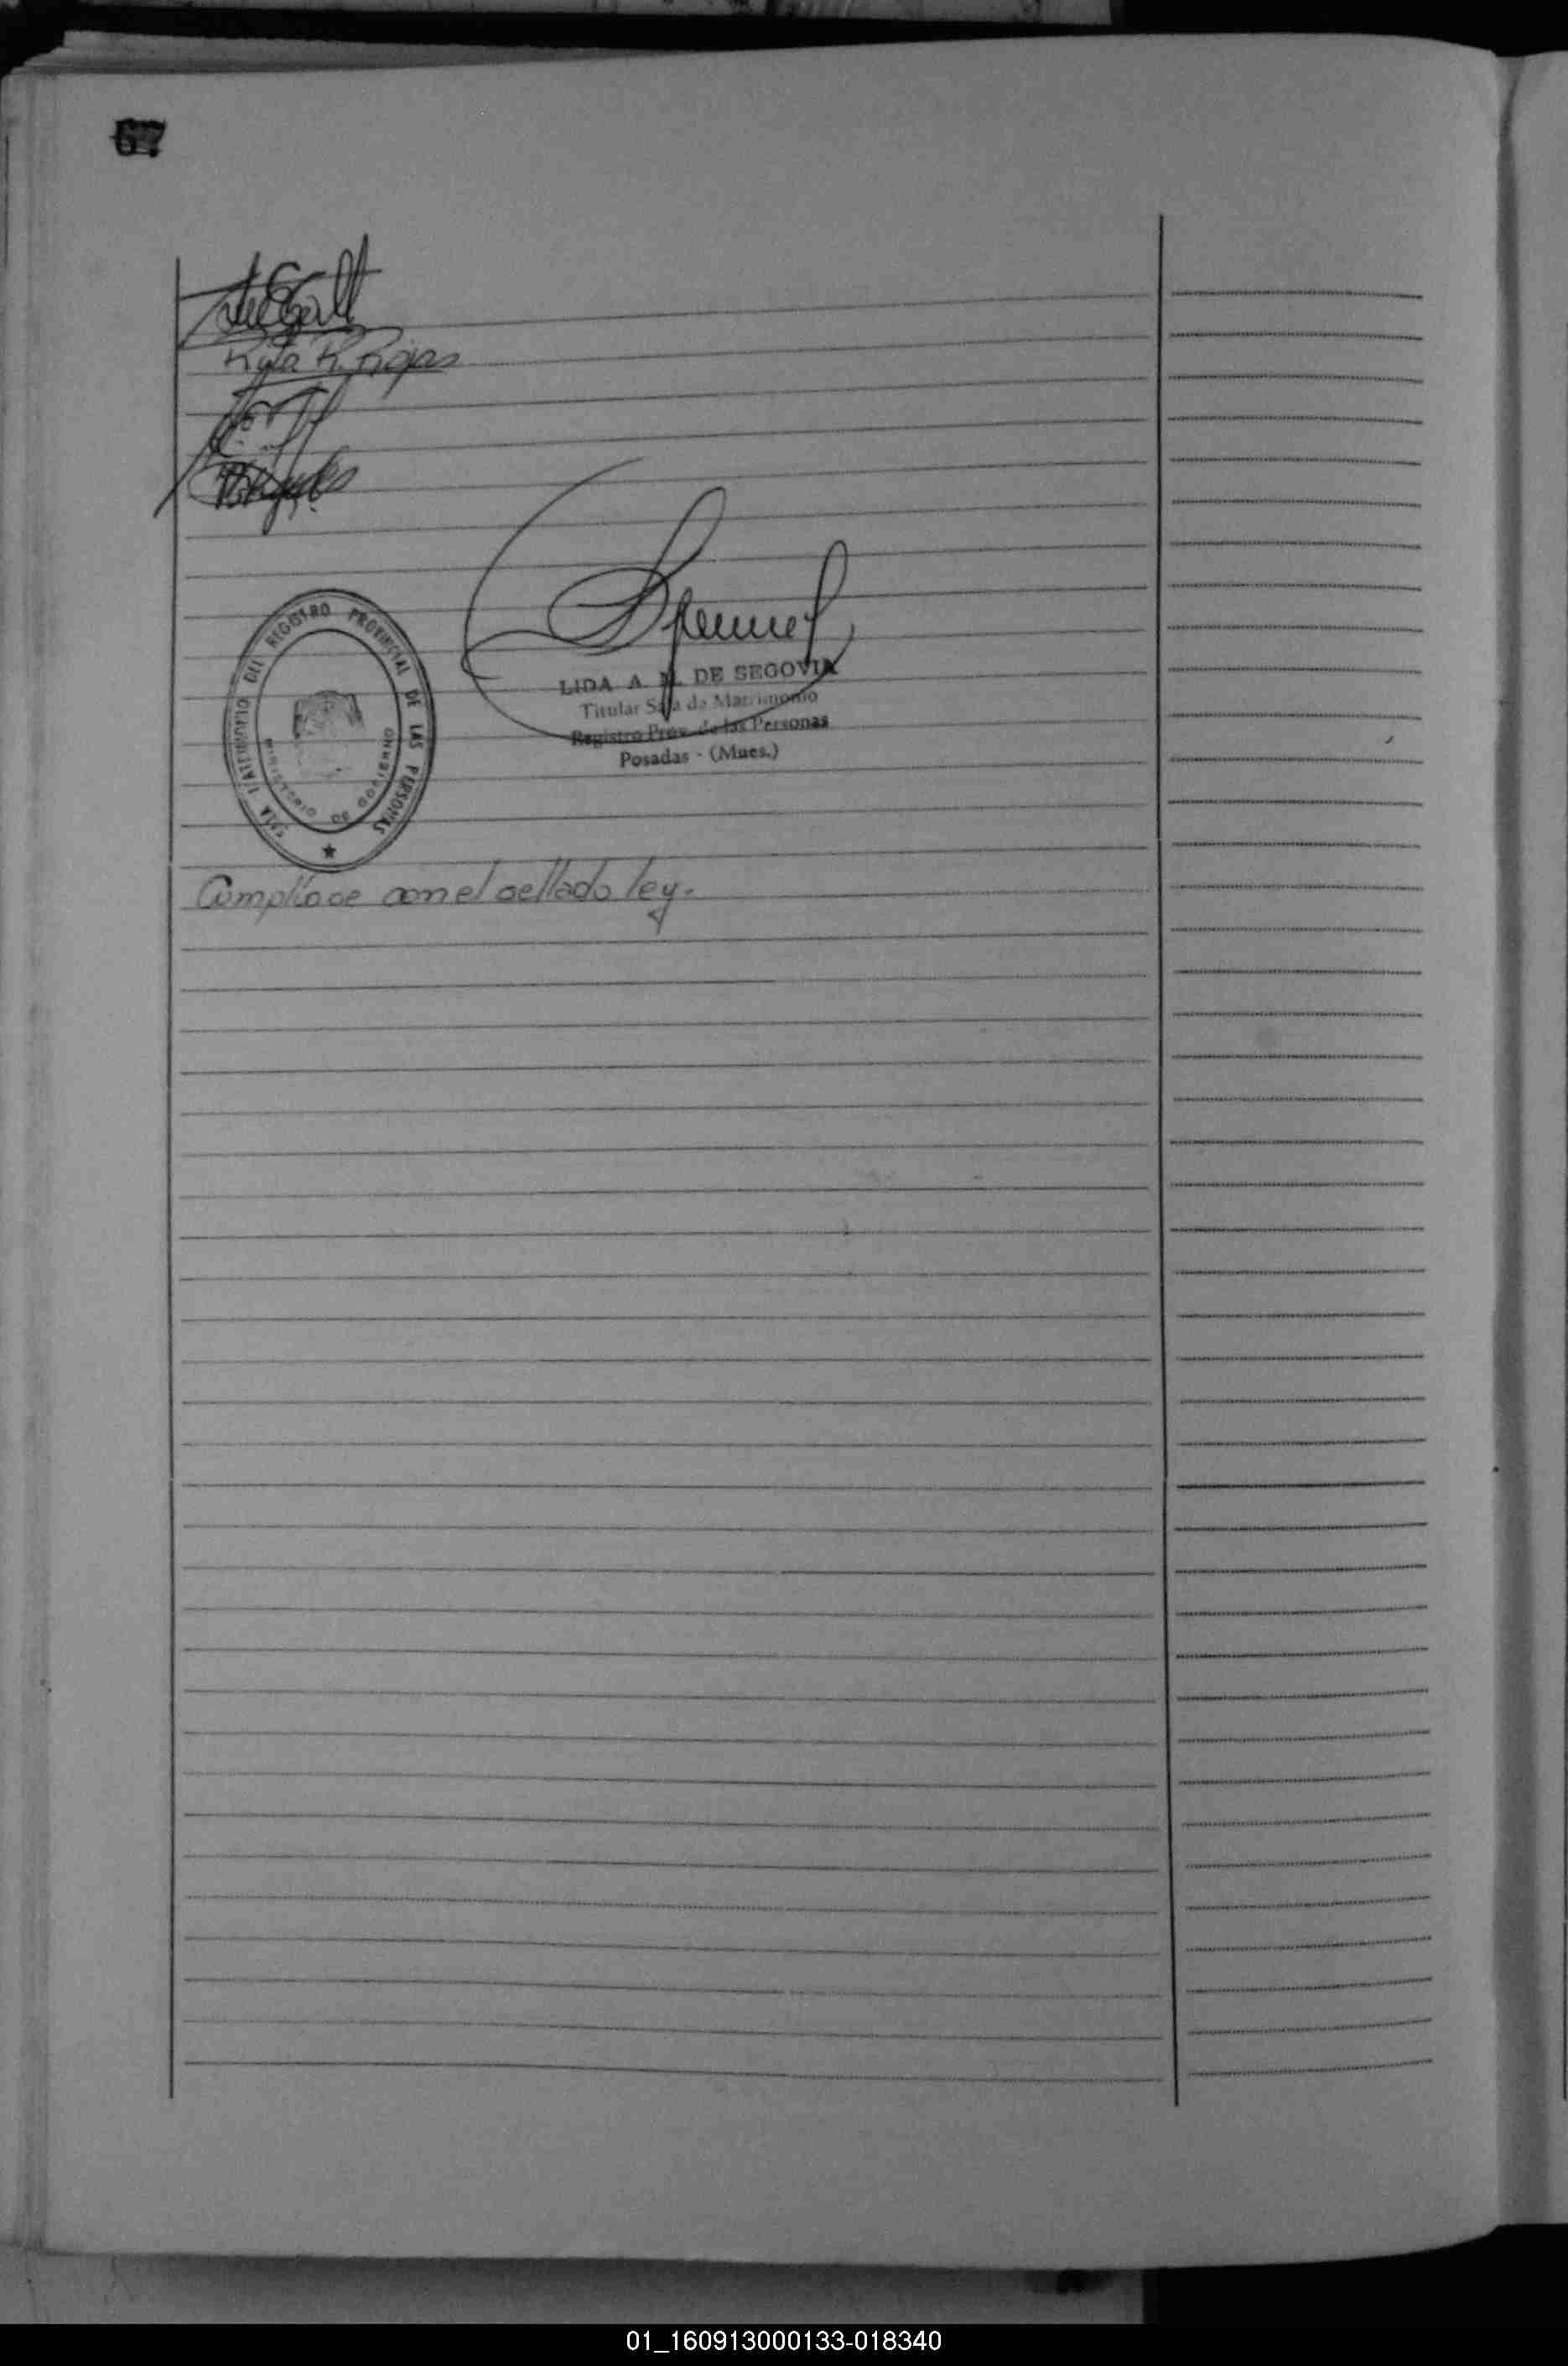 67
Rita R. Rojas
SALA MATRIMONIO DEL REGISTRO PROVINCIAL DE LAS PERSONAS
MINISTERIO DE GOBIERNO
LIDA A. DE SEGOVIA
Titular Sala de Matrimonio
Registro Prov. de las Personas
Posadas - (Mnes.)
Complíose con el sellado ley.
01_160913000133-018340